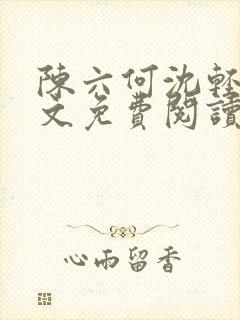 陳六何沈輕
文免費閱讀
心雨留香